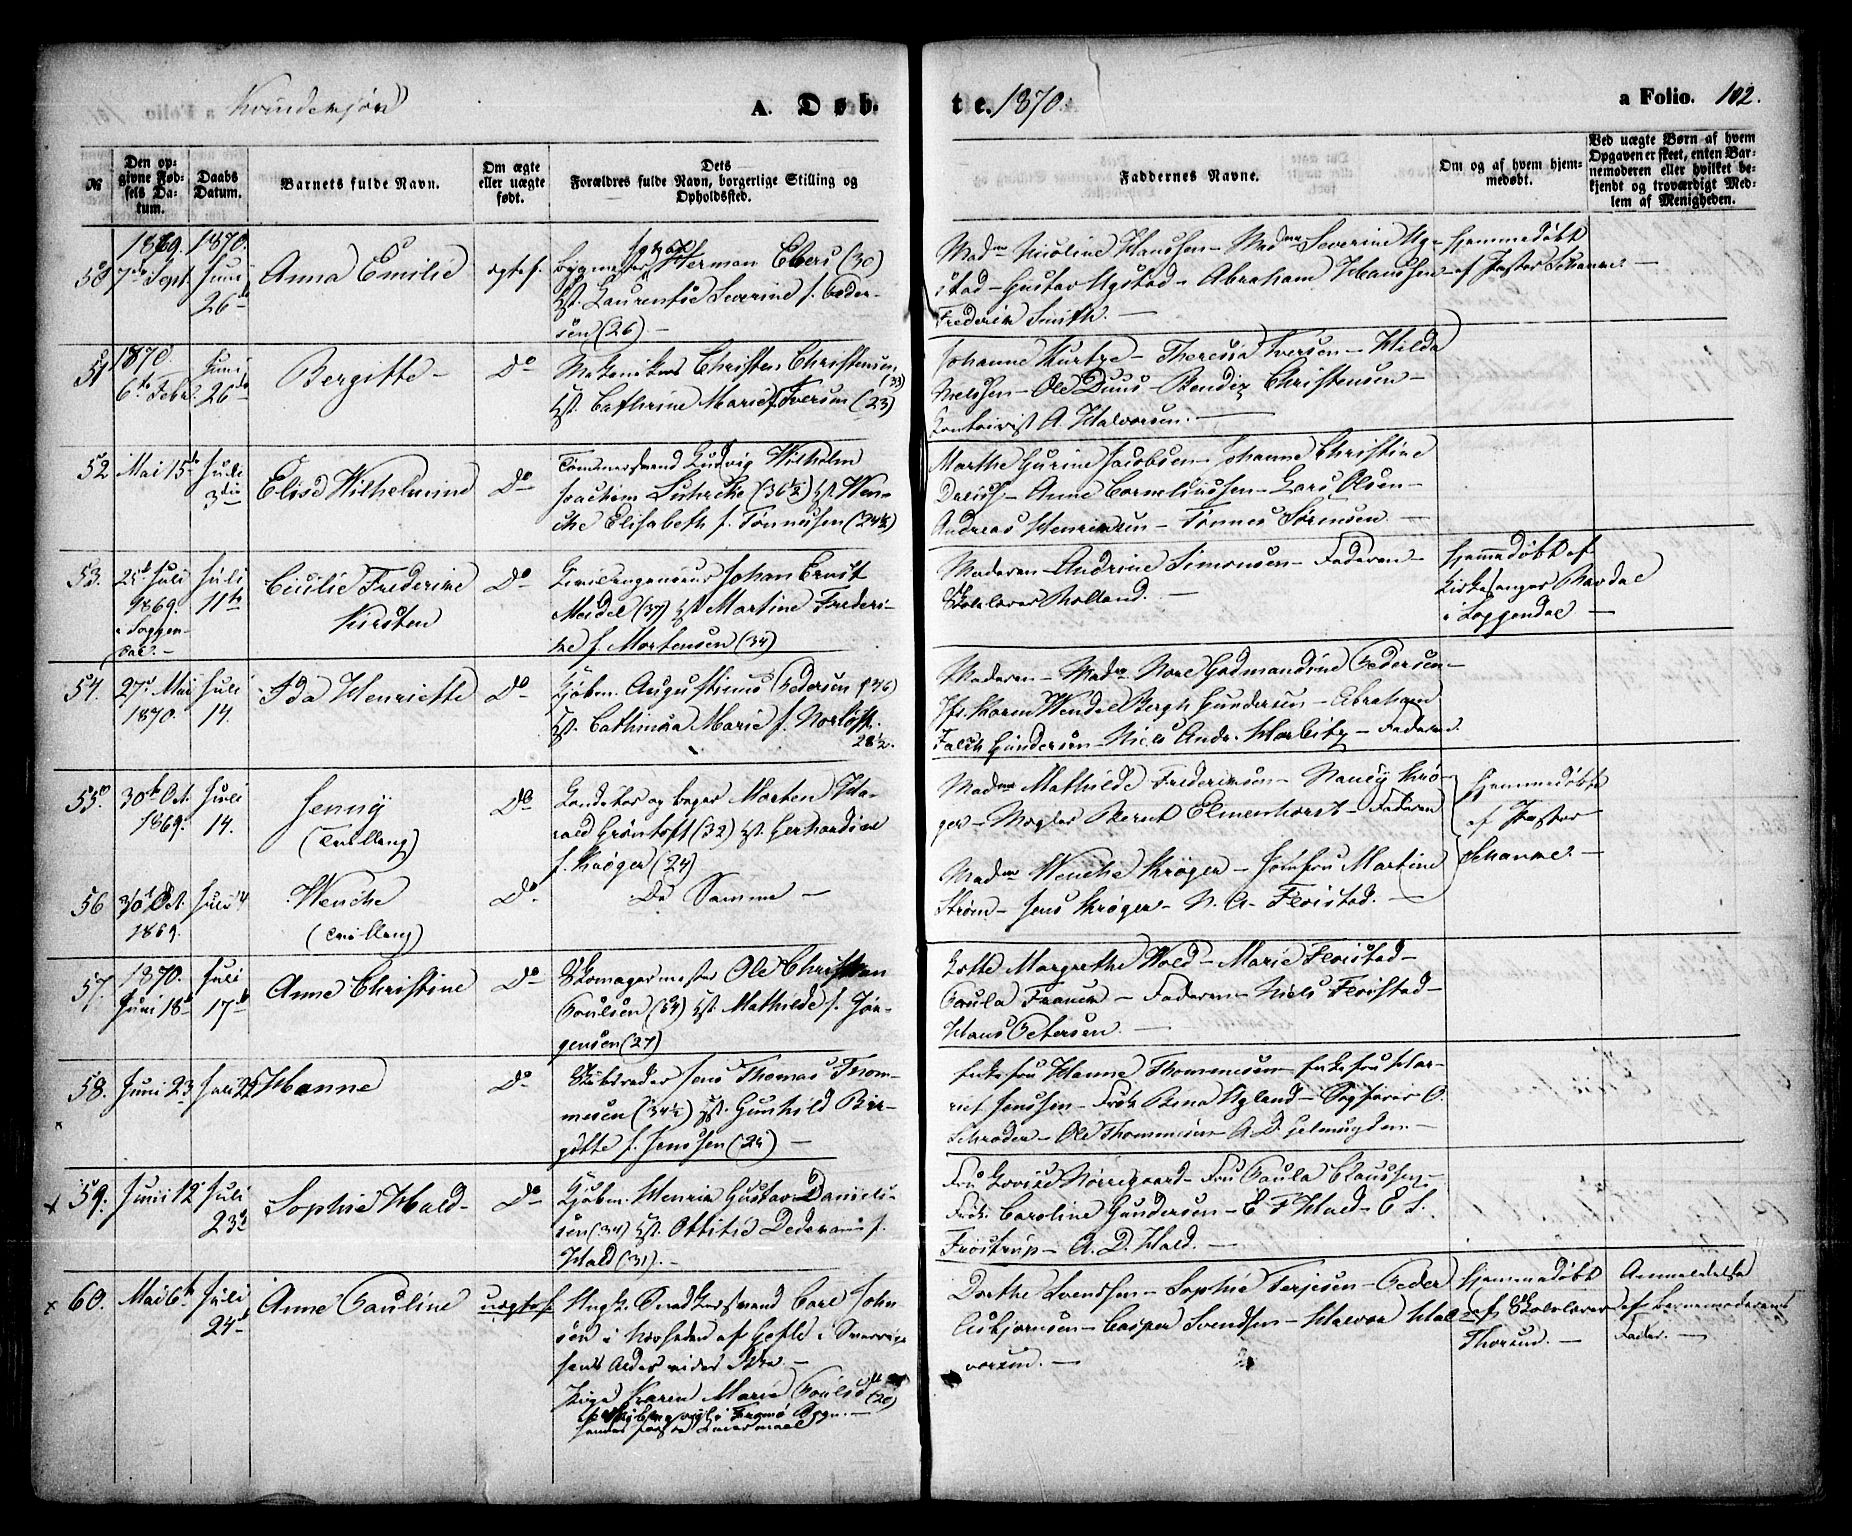 a Folio.
Kvindekjøn
A. Døb-
te. 1870.
a Folio. 102.
№
Den op-
givne Fød-
sels Da-
tum.
Daabs
Datum.
Barnets fulde Navn.
Om ægte
eller uægte
født.
Dets
Forældres fulde Navn, borgerlige Stilling og
Opholdssted.
Faddernes Navne.
Om og af hvem hjem-
medøbt.
Ved uægte Børn af hvem
Opgaven er skeet, enten Bar-
nemoderen eller hvilket be-
kjendt og troværdigt Med-
lem af Menigheden.
50
1869.
7de Sept
1870.
Juni
26de
Anna Emilie
ægtef.
Herman Ebers (30)
Hst. Laurentse Severine f. Peder-
sen (26) —
Madme Nicoline Hanssen — Madme Severine Ug-
stad — Gustav Ugstad — Abraham Hanssen —
Frederik Smith. —
Hjemmedøbt
af Pastor Schanne. —
51
1870.
6te Febr.
Juni
26de
Bergitte —
Do
Mekanikus Christen Christensen
(33)
Hst. Cathrine Marie f. Iversen (23)
Johanne Kurtze — Theresia Iversen — Hilda
Nielssen — Ole Duus — Bendix Christensen —
Kontorist A. Halvorsen. —
52
Mai 15de
Juli
3die
Elise Wilhelmine
Do
Tømmermand Ludvig Wilhelm
Joachim Lührche (36½) Hst. Wen-
che Elisabeth f. Tønnessen (24½)
Marthe Gurine Jacobsen — Johanne Christine
Dreiss — Anne Corneliussen — Lars Olsen —
Andreas Henriksen — Tønnes Sørensen. —
53.
25de Juli
1869.
i Soggen-
dal. —
Juli
11te
Cicilie Frederike
Kirsten
Do
Civilingenieur Johan Ernst
Meidel (37) Hst. Martine Frederi-
ke f. Mortensen (34)
Moderen — Andrine Simonsen — Faderen —
Skolelærer Molland. —
Hjemmedøbt af
Kirkesanger Navdal
i Soggendal —
54.
27de Mai
1870.
Juli
14.
Ida Henriette
Do
Kjøbm. Augustinus Pedersen (46)
Hst. Cathinka Marie f. Norløff.
28½.
Moderen — Madme Nore Gudmandine Pedersen —
Jfr. Maren Wendel Bergh Gundersen — Abraham
Falck Gundersen — Niels Andr. Harbitz — Faderen.
55.
30te Oct.
1869.
Juli
14.
Jenny
(Tvilling)
Do
Landetorvslæger Morten Ha-
rald Grøntoft (32) Hst. Gerhardine
f. Krøger (24)
Madme Mathilde Frederiksen — Nancy Krø-
ger — Mægler Bernt Elmenhorst — Faderen
Hjemmedøbt
af Pastor
Schanne. —
56
30te Oct.
1869.
Juli 14
Wenche
(Tvilling)
Do
De Samme —
Madme Wenche Krøger — Jomfru Martine
Strøm — Jens Krøger — N. A. Fløistad. —
57.
1870.
Juni 18de
Juli
17de
Anne Christine
Do
Skomagermester Ole Christian
Poulsen (34) Hst. Mathilde f. Jør-
gensen (27)
Lotte Margrethe Wold — Marie Fløistad —
Paula Franck — Faderen — Niels Fløistad —
Hans Petersen. —
58.
Juni 23
Juli 22
Hanne
Do
Skibsreder Jens Thomas Thom-
mesen (34½) Hst. Gunhild Bir-
gitte f. Jenssen (24) —
Enkefru Hanne Thommesen — Enkefru Har-
riet Jenssen — Frøk Rena Ugland — Sagfører O.
Schrøder — Ole Thommesen — A. D. Helmugden. —
x 59.
Juni 12
Juli
23de
Sophie Hald —
Do
Kjøbm. Henrik Gustav Daniel-
sen (34) Hst. Ottitie Dedekam f.
Hald (31). —
Fru Lovise Nørregaard — Fru Paula Claussen —
Frøk. Caroline Gundersen — E. F. Hald — E. S.
Frøstrup — A. D. Hald. —
x 60.
Mai 6te
Juli
24de
Anne Pauline
uægtef.
Ungk. Snedkersvend Carl John
sen i Nærheden af Gefle i Sverrige
hans Alder vides ikke. —
Pige Karen Marie Poulsd (20)
Dorthe Svendsen — Sophie Terjesen — Peder
Asbjørnsen — Casper Svendsen — Halvor Hal-
vorsen. —
Hjemmedøbt
af Skolelærer
Thorsen. —
Anmeldelse
af Barnemoderens
Fader. —